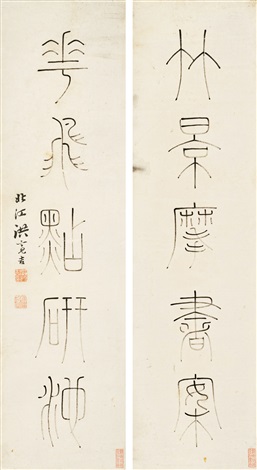 竹景摩書案
華飛點研池
北江洪亮吉